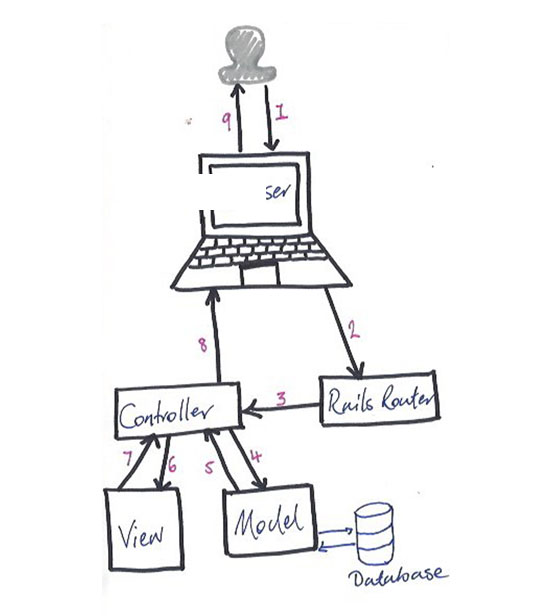 9
1
ser
2
8
3
Controller
Rails Router
7
6
5
4
View
Model
Database